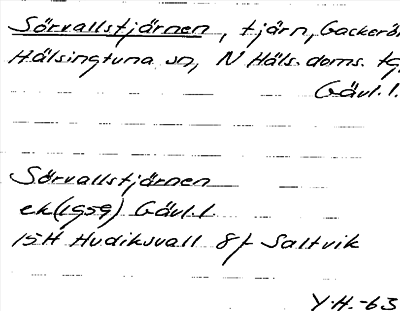 Sörvallstjärnen, tjärn, Gackerö
Hälsingtuna sn, N Häls. doms. tg.
Gävl. l.
Sörvallstjärnen
ek (1959) Gävl. l
15H Hudiksvall 8f Saltvik
Y.H. -63